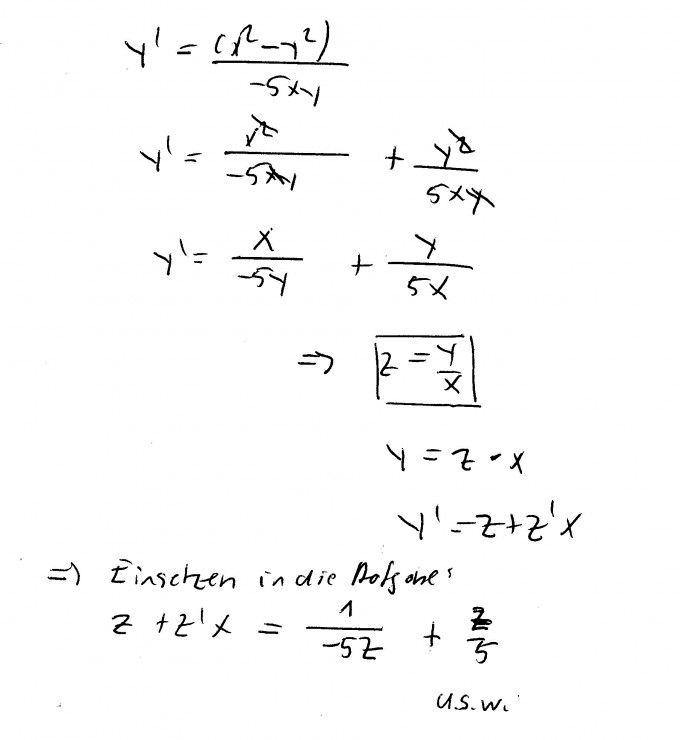 y' = (x²-y²) / -5xy
y' = x² / -5xy + y² / 5xy
y' = x / -5y + y / 5x
⇒ z = y/x
y = z · x
y' = z + z'x
⇒ Einsetzen in die Aufgabe:
z + z'x = 1 / -5z + z / 5
u.s.w.